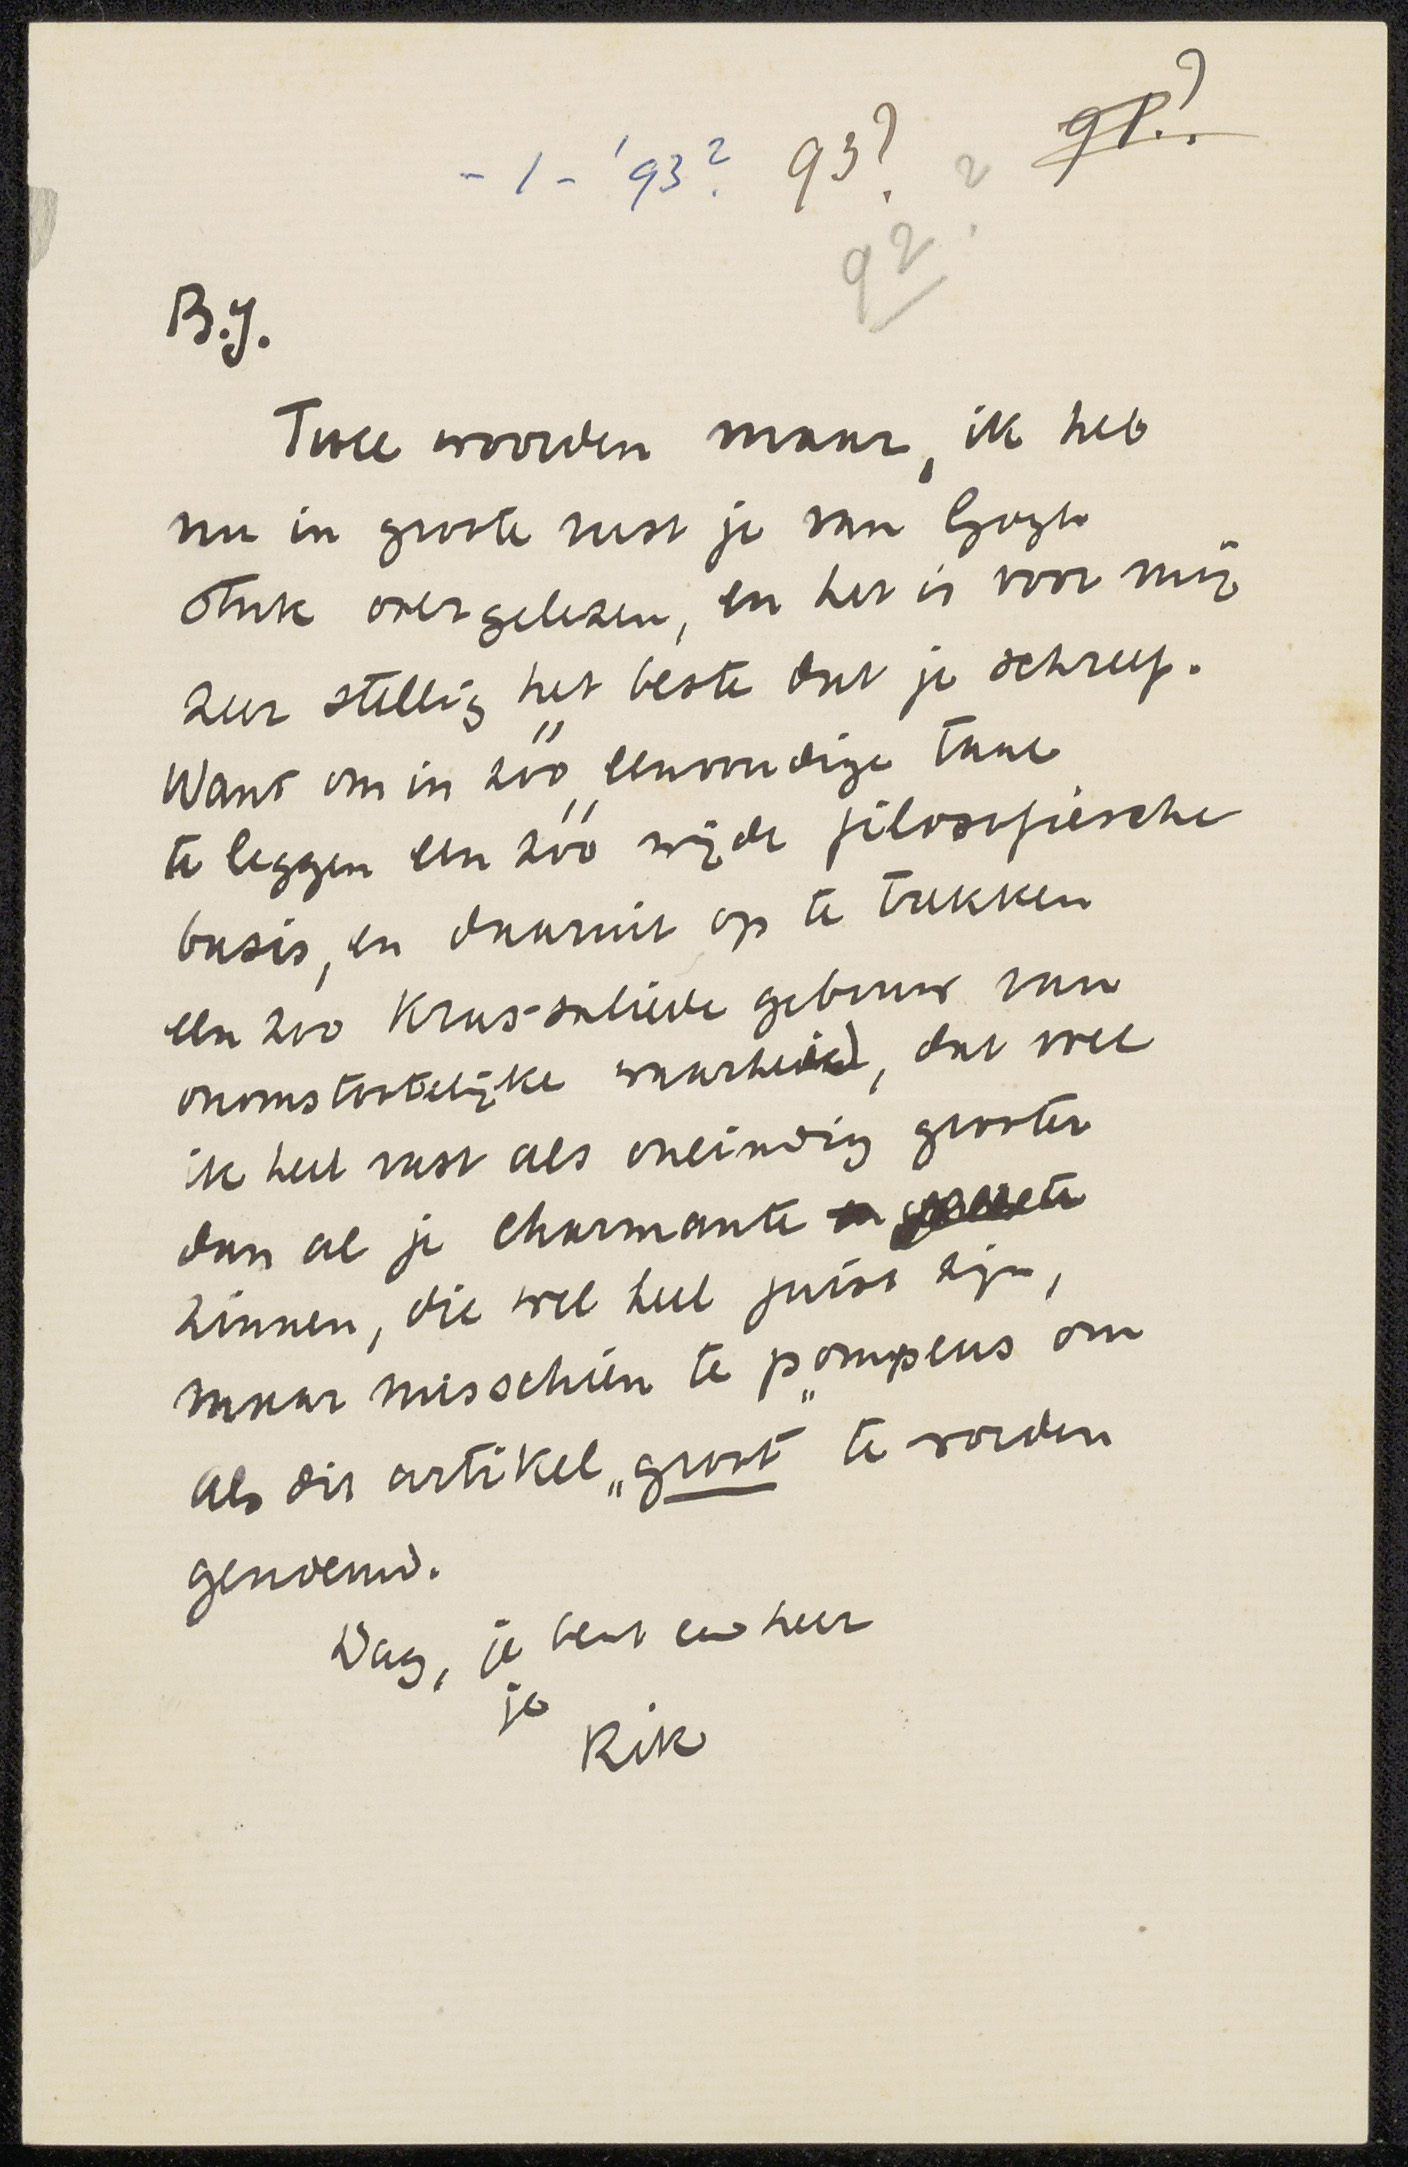 -1-'93? 93? 91.?
92?
B.J.
Twee woorden maar, ik heb
nu in groote rust je van Gogh
stuk overgelezen, en het is voor mij
zeer stellig het beste dat je schreef.
Want om in zóó eenvoudige taal
te leggen een zóó wijde filosofiesche
basis, en daaruit op te trekken
een zoo kras-soliede gebouw van
onomstootelijke waarheid, dat vat
ik heel vast als oneindig grooter
dan al je charmante
zinnen, die wel heel juist zijn,
maar misschien te pompeus om
als dit artikel „groot" te worden
genoemd.
Dag, je bent een heer
je
Rik